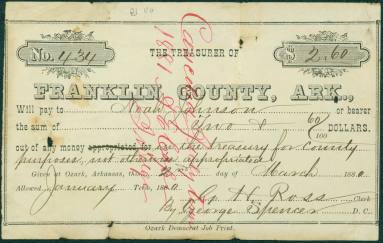 No. 434
THE TREASURER OF
$ 2.60
FRANKLIN, COUNTY, ARK.,
Will pay to Noah Johnson or bearer
the sum of Two & 60/100 DOLLARS.
out of any money appropriated for in the Treasury for County
purposes, not otherwise appropriated
Given at Ozark, Arkansas, this day March 1880.
Allowed January Term, 1880
C. H. Ross Clerk
By George Spencer D. C.
Ozark Democrat Job Print.